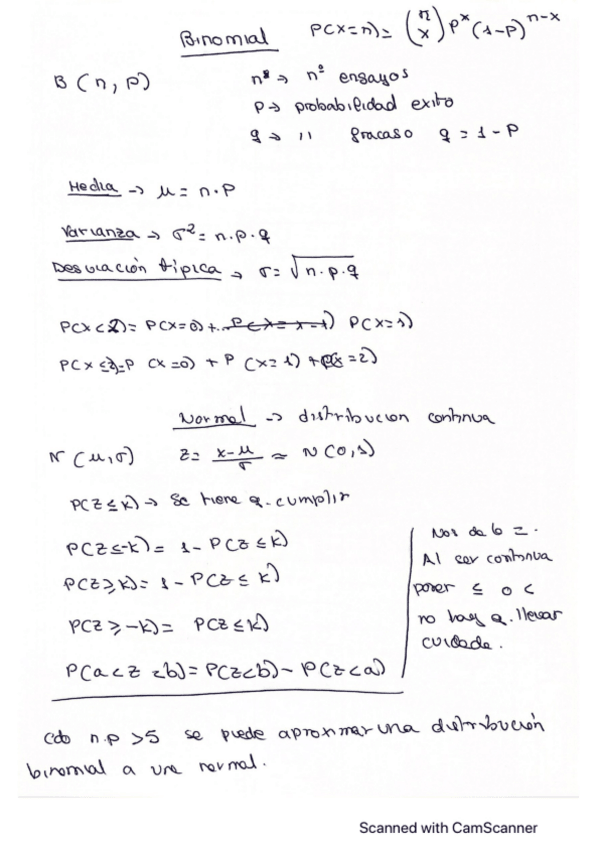 Binomial P(X=n)= (n x) p^x (1-p)^n-x
B (n, p) nº → nº ensayos
p → probabilidad exito
q → 11 fracaso q = 1 - P
Media → μ = n·p
Varianza → σ² = n·p·q
Desviación típica → σ = √n·p·q
P(X<2) = P(X=0) + P(X=1)
P(X≤2)=P (X=0) + P (X=1) + P(X=2)
Normal → distribucion continua
N (μ,σ) z = x-μ/σ ≈ N(0,1)
P(Z≤K) → Se tiene q. cumplir
P(Z≤-K) = 1 - P(Z≤K)
P(Z≥K) = 1 - P(Z≤K)
P(Z≥-K) = P(Z≤K)
P(a<Z<b) = P(Z<b) - P(Z<a)
Nos da lo =.
Al ser continua
poner ≤ o <
no hay q. llevar
cuidado.
Cdo n.p >5 se puede aproximar una distribución
binomial a una normal.
Scanned with CamScanner